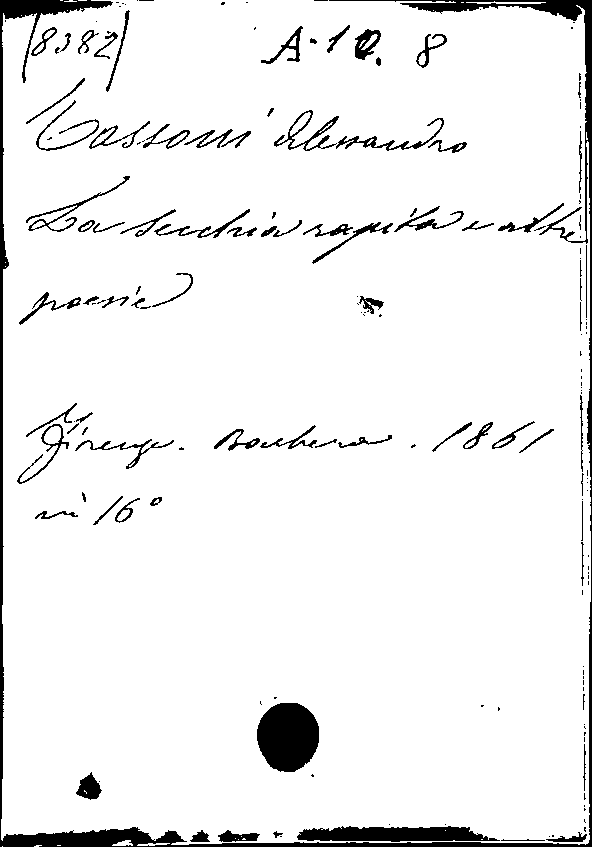 (8382) A·10. 8
Tassoni Alessandro
La secchia rapita e altre
poesie
Firenze. Barbera. 1861
in 16°